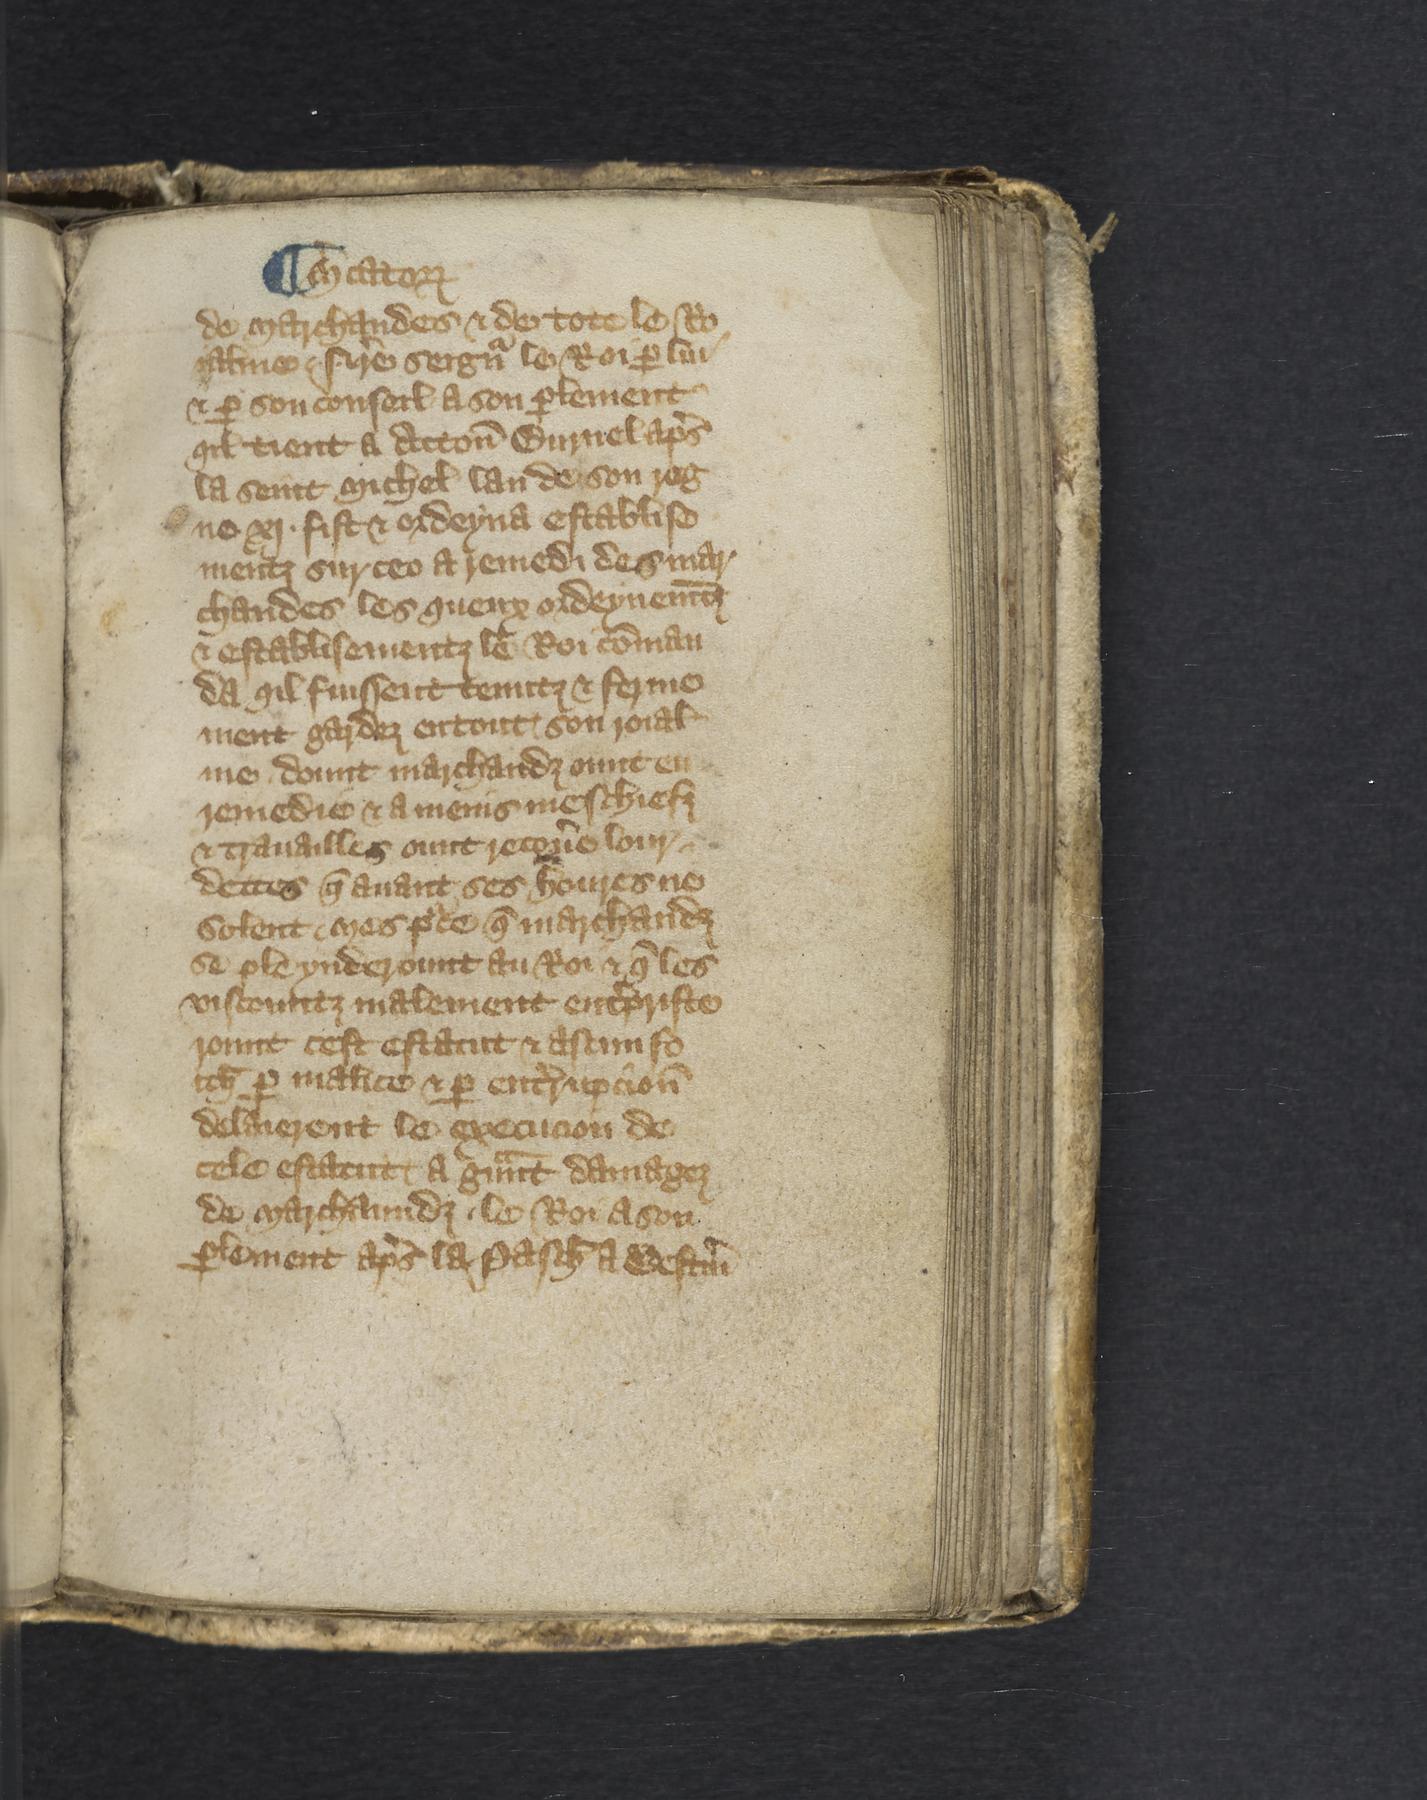 ¶ Mcatoꝝ
de marchandes ⁊ de tote le Ro
ialme . sire seignᷣ le Roi ꝑ lui
⁊ ꝑ son conseil a son ꝑlement
qil tient a Actoñ Burnel apˢ
la seint Michel lan de son reg
ne xj . fist ⁊ ordeyna establise
mentz sur ceo a remedi des mar
chandes les queux ordeynemtz
⁊ establisementz le Roi cōmau
da qil fuissent tenutz ⁊ ferme
ment gardez en tout son roial
me . dount marchandz ount eu
remedie ⁊ a meins meschiefz
⁊ trauailles ount recoũe lour
dettes q̄ auant ses houres ne
solent . mes pᵒce q̄ marchandz
se pleynderount au Roi ⁊ q̄ les
viscountz malement ent̾priste
rount cest estatut ⁊ ascun fo
itz ꝑ malice ⁊ ꝑ ent̾rupcioñ
delaierent le execucion de
cele estatut a gͣunt damagez
de marchaundz . le Roi a son
ꝑlement apˢ la Pasch̄ a Westm̃